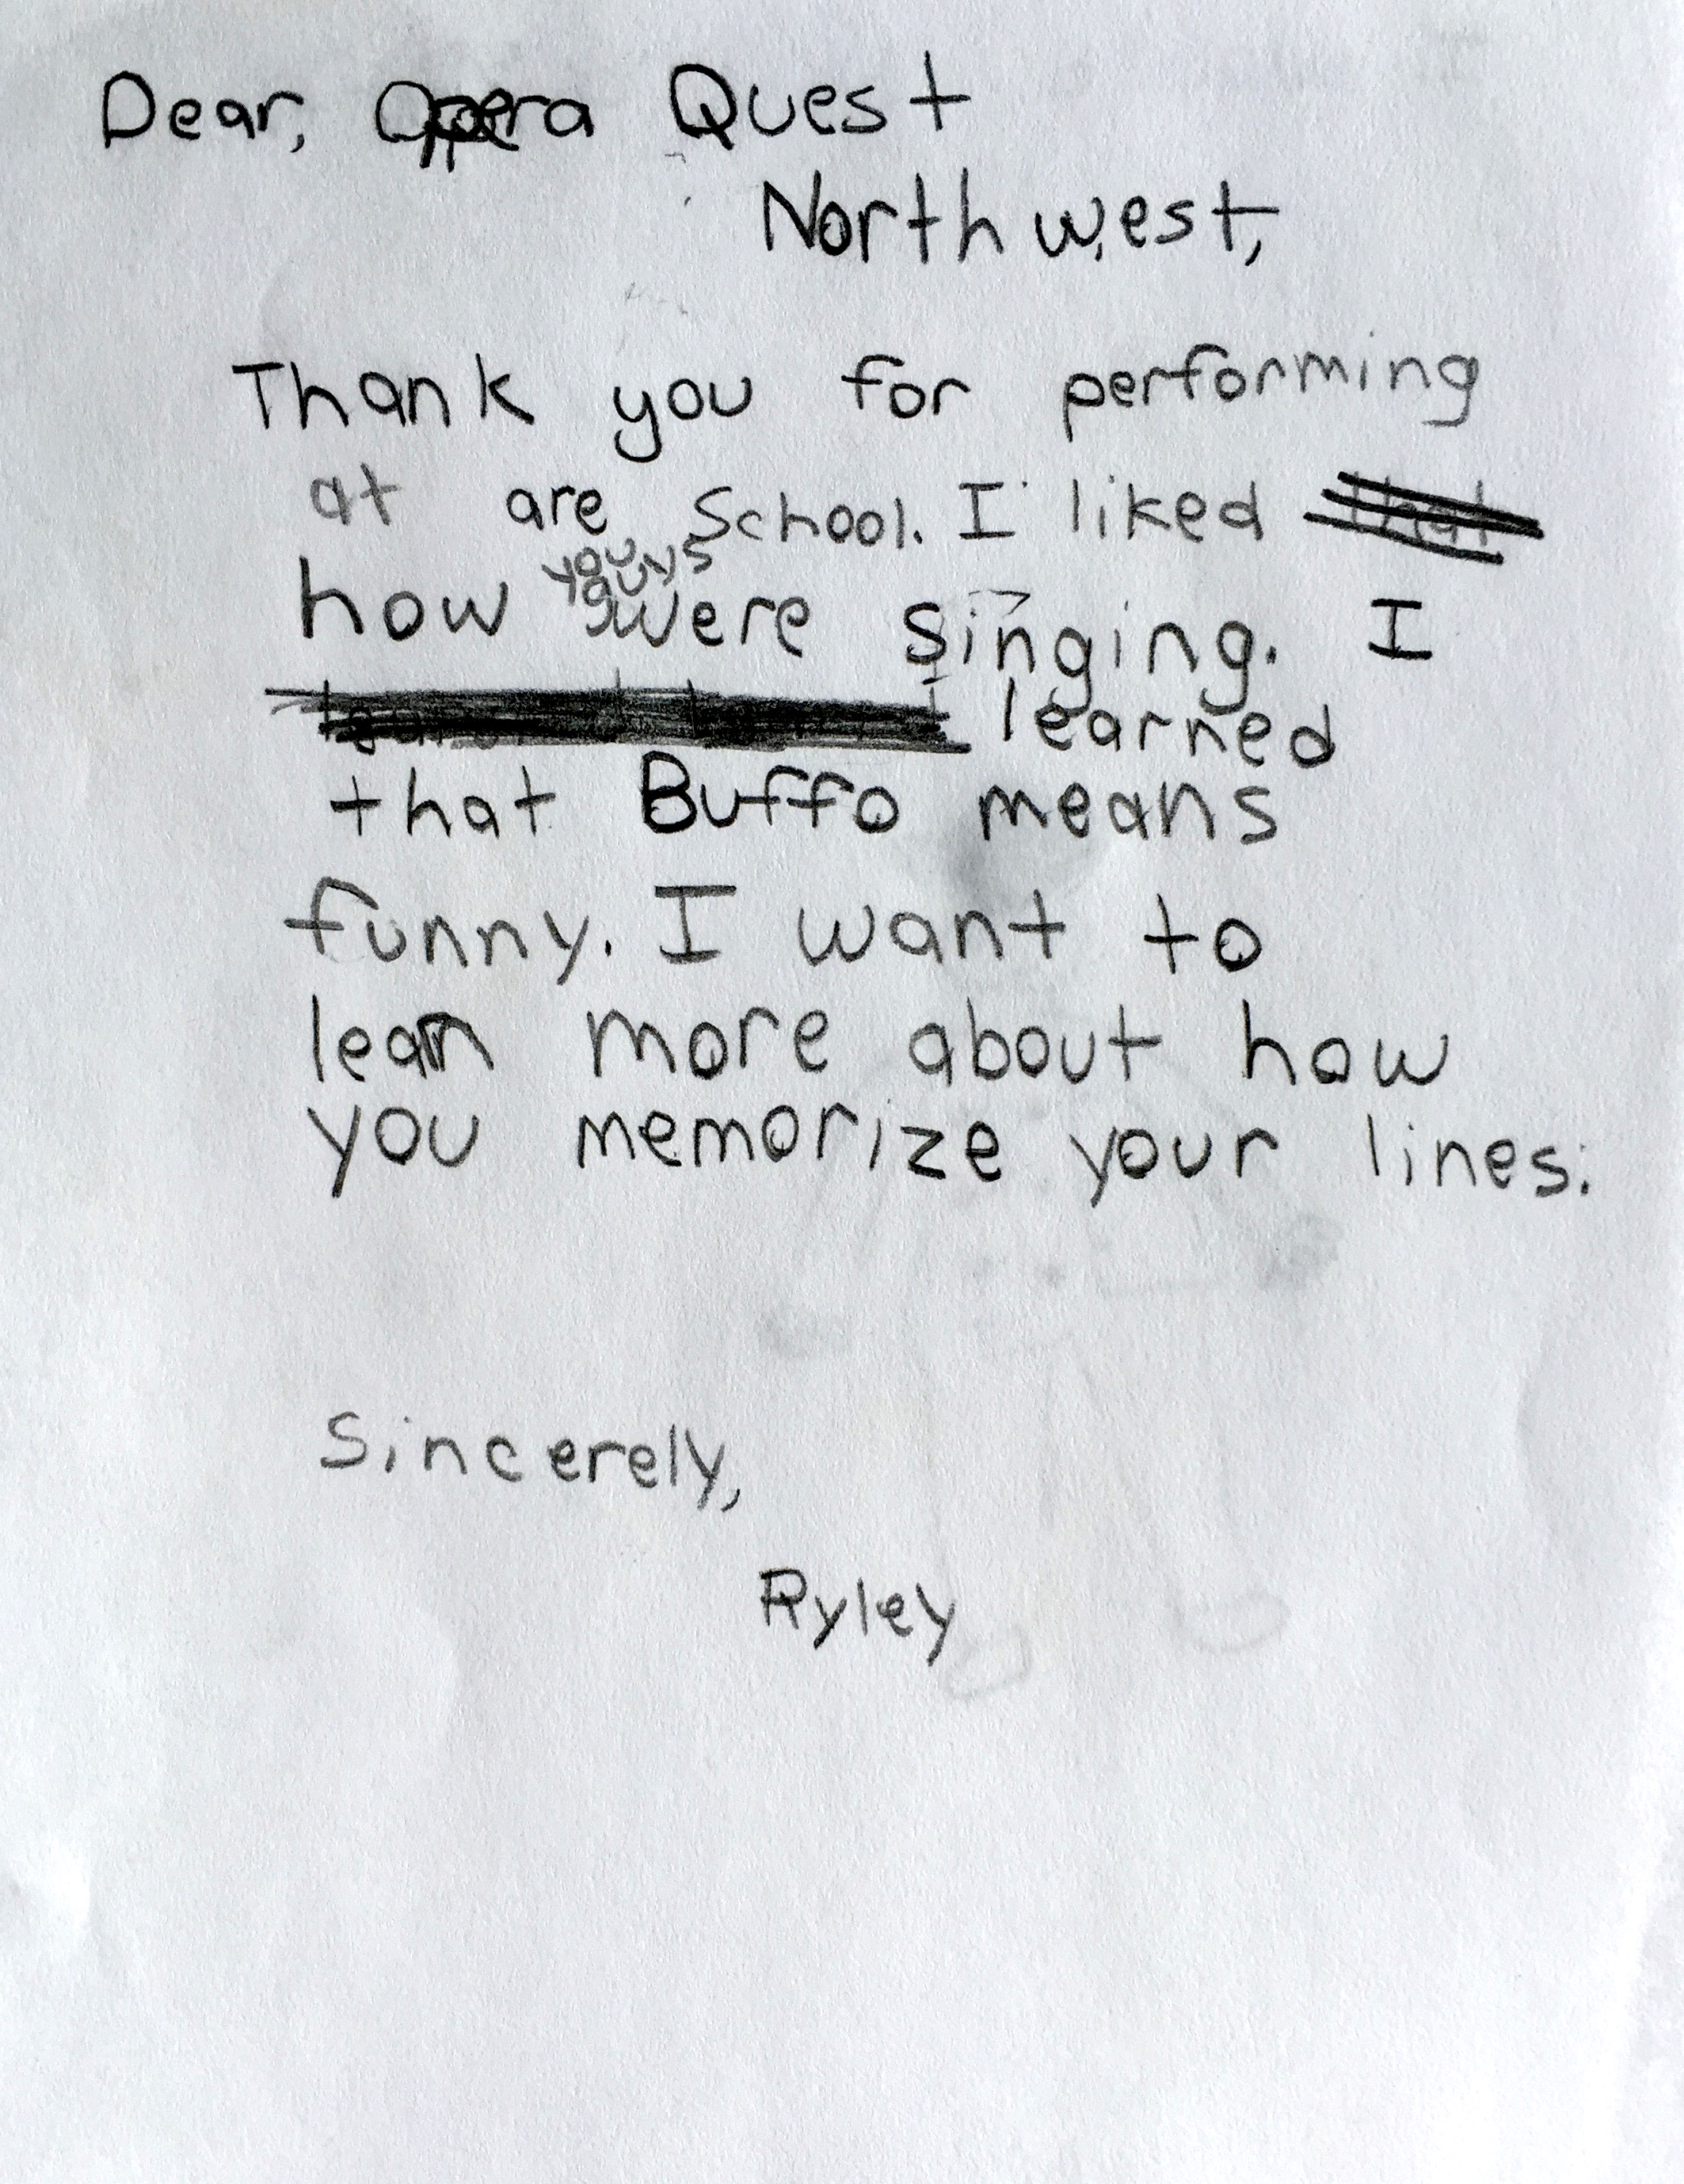 Dear, Opera Quest
Northwest,
Thank you for performing
at are School. I liked
how were singing. I
learned
that Buffo means
funny. I want to
learn more about how
you memorize your lines.
Sincerely,
Ryley